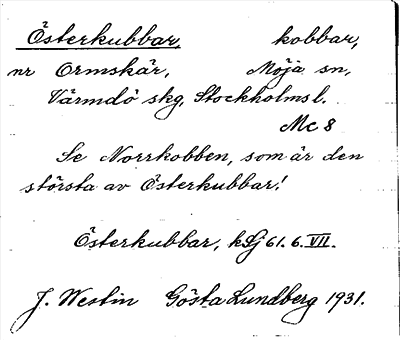 Österkubbar, kobbar,
nr Ormskär, Möja sn,
Värmdö skg, Stockholms l.
Mc 8
Se Norrkobben, som är den
största av Österkubbar!
Österkubbar, kSj 61. 6. VII.
J. Westin Gösta Lundberg 1931.